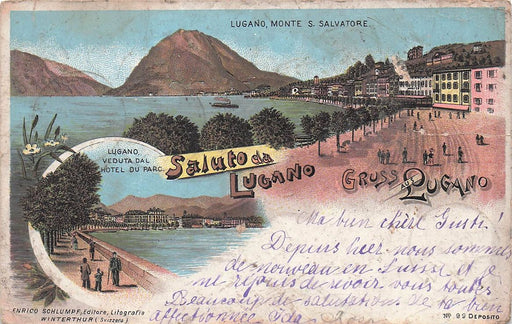 LUGANO, MONTE S. SALVATORE.
LUGANO
VEDUTA DAL
HÔTEL DU PARC.
Saluto da
LUGANO
GRUSS LUGANO
Ma bien chère Gusti!
Depuis hier nous sommes
de nouveau en Suisse et je
me réjouis de revoir vous toutes
Beaucoup de salutations de ta bien
affectionnée Ida
ENRICO SCHLUMPF, Editore, Litografia
WINTERTHUR (Svizzera)
No. 99 DEPOSITO